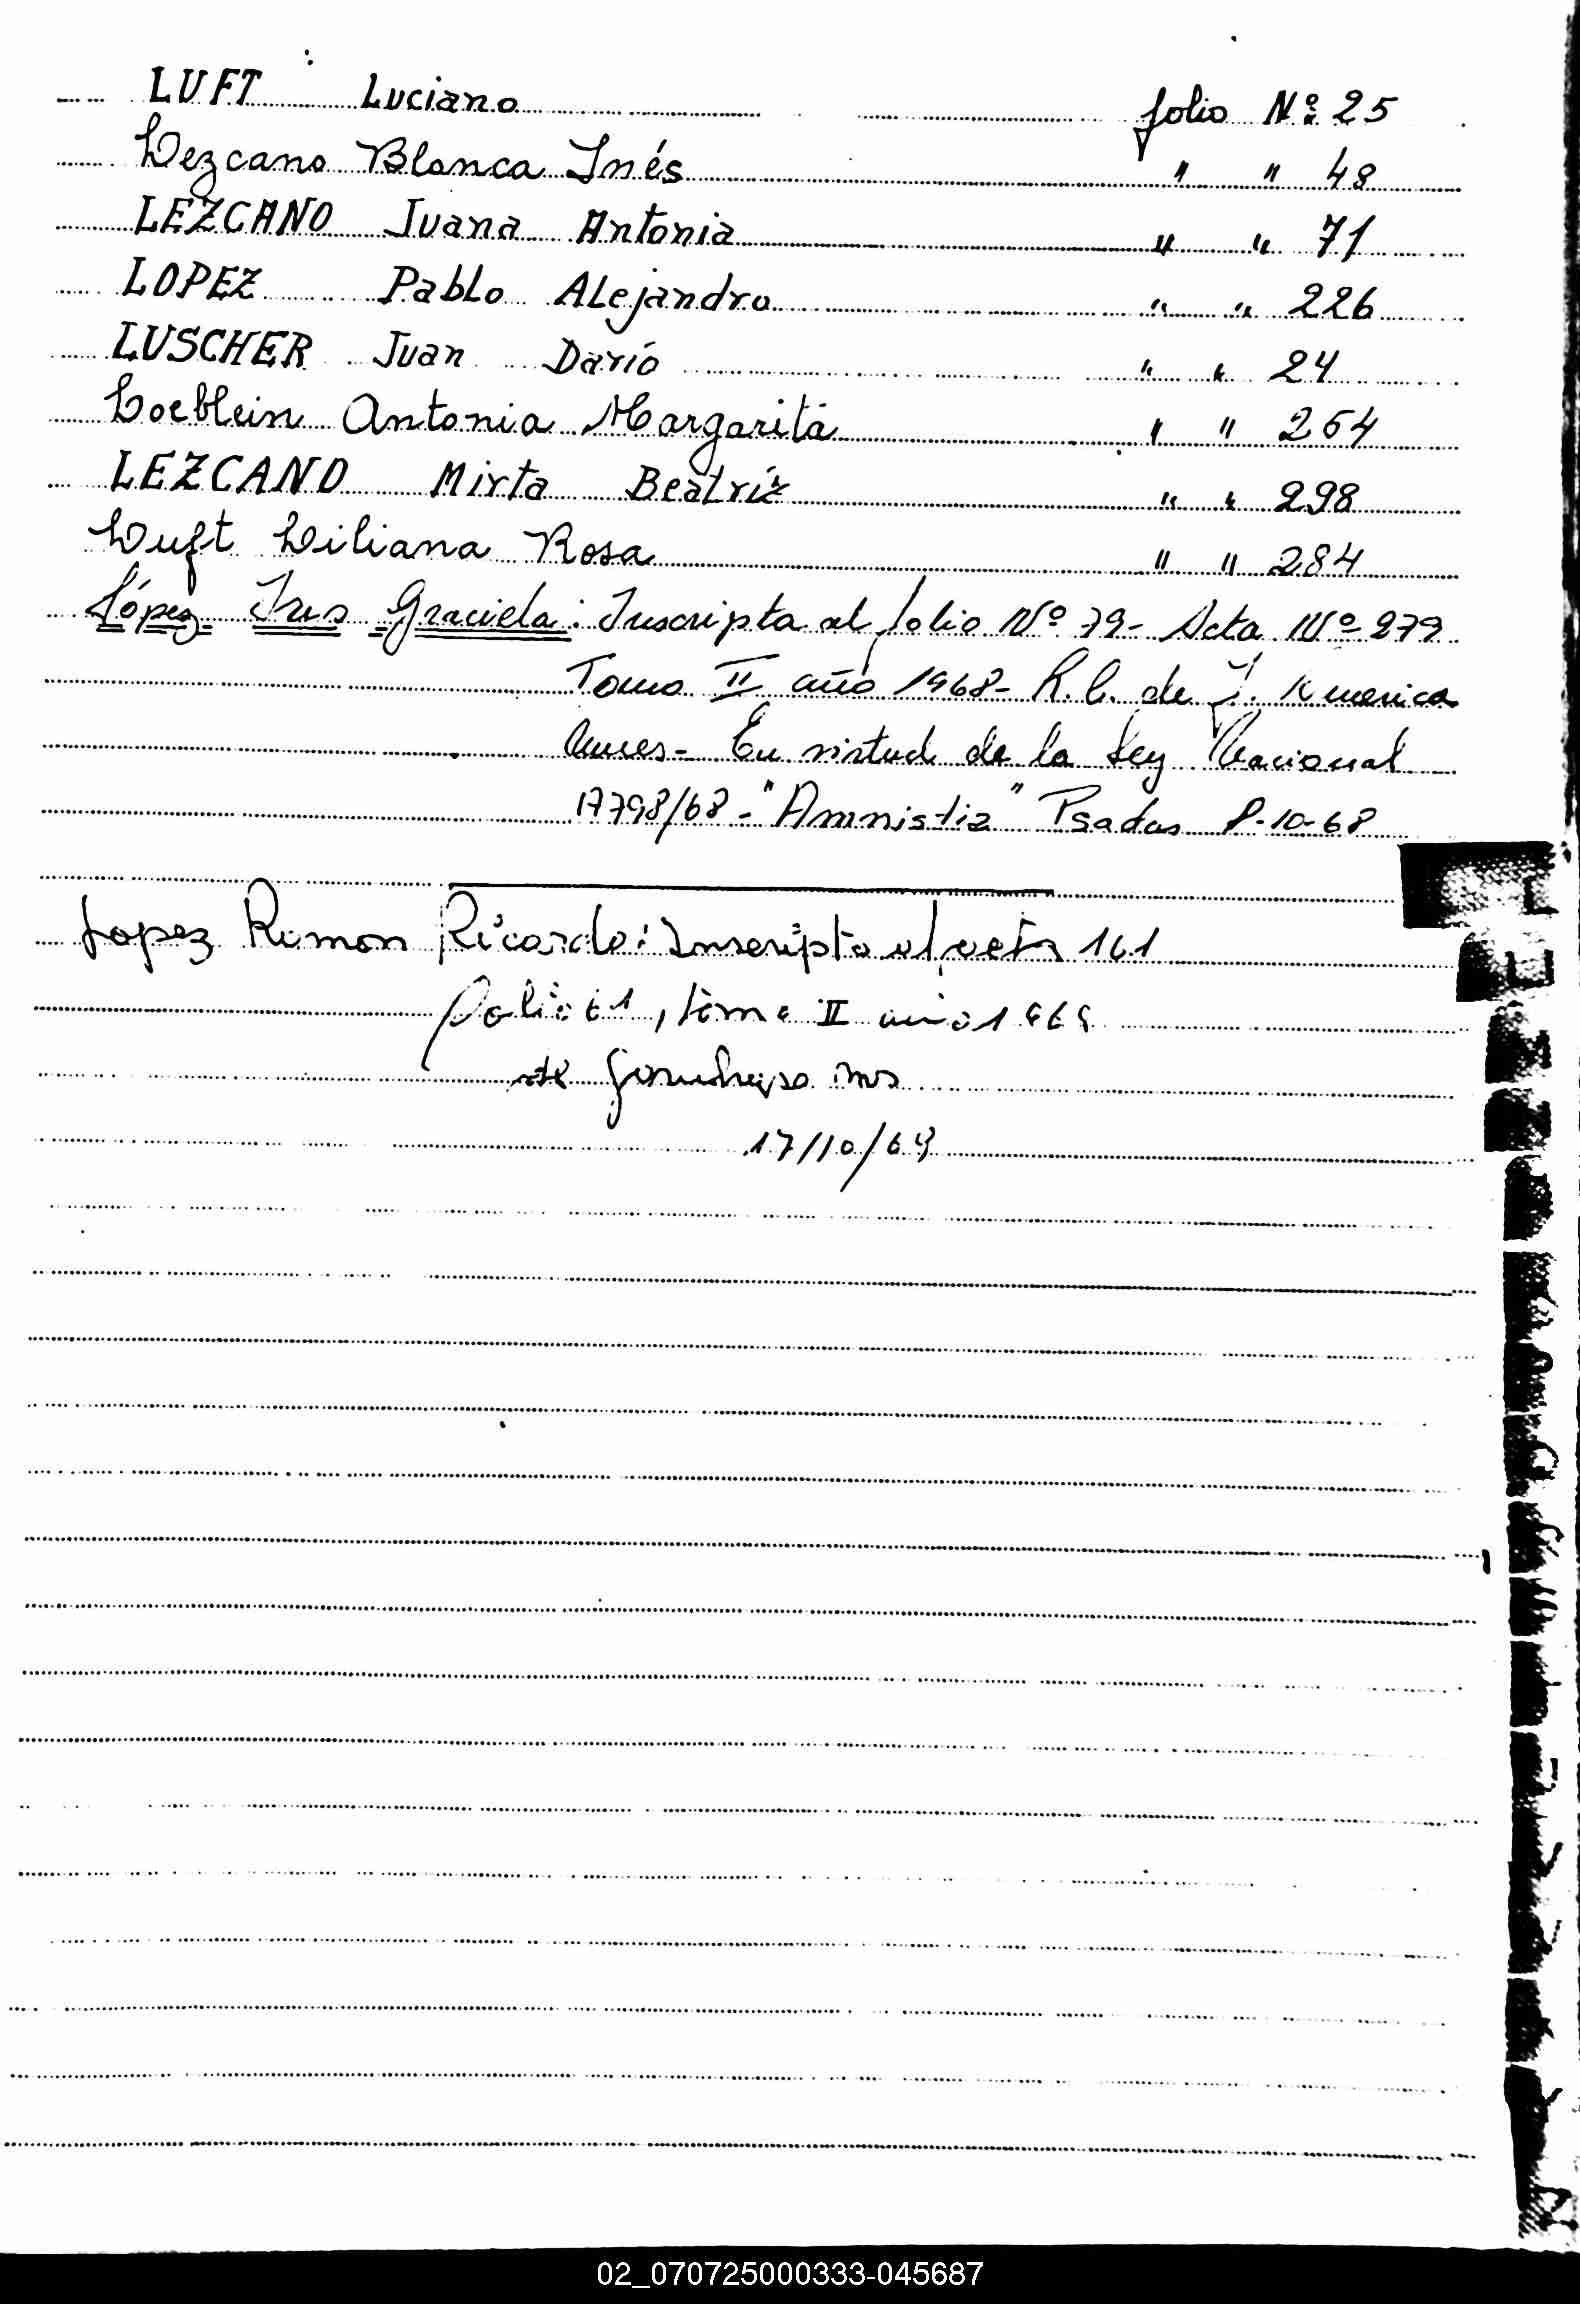 LUFT Luciano folio Nº 25
Lezcano Blanca Inés " " 48
LEZCANO Juana Antonia " " 71
LOPEZ Pablo Alejandro " " 226
LUSCHER Juan Darío " " 24
Loeblein Antonia Margarita " " 264
LEZCANO Mirta Beatríz " " 298
Luft Liliana Rosa " " 284
López Irus Graciela: Inscripta al folio Nº 79- Acta Nº 279
Tomo II año 1968- R.C. de J. America
Mnes- En virtud de la Ley Nacional
17798/68- "Amnistia" Psadas 8-10-68
Lopez Ramon Ricardo: Inscripto al acta 161
folio 61, tomo II año 1969
de Garuhape Mns
17/10/69
02_070725000333-045687